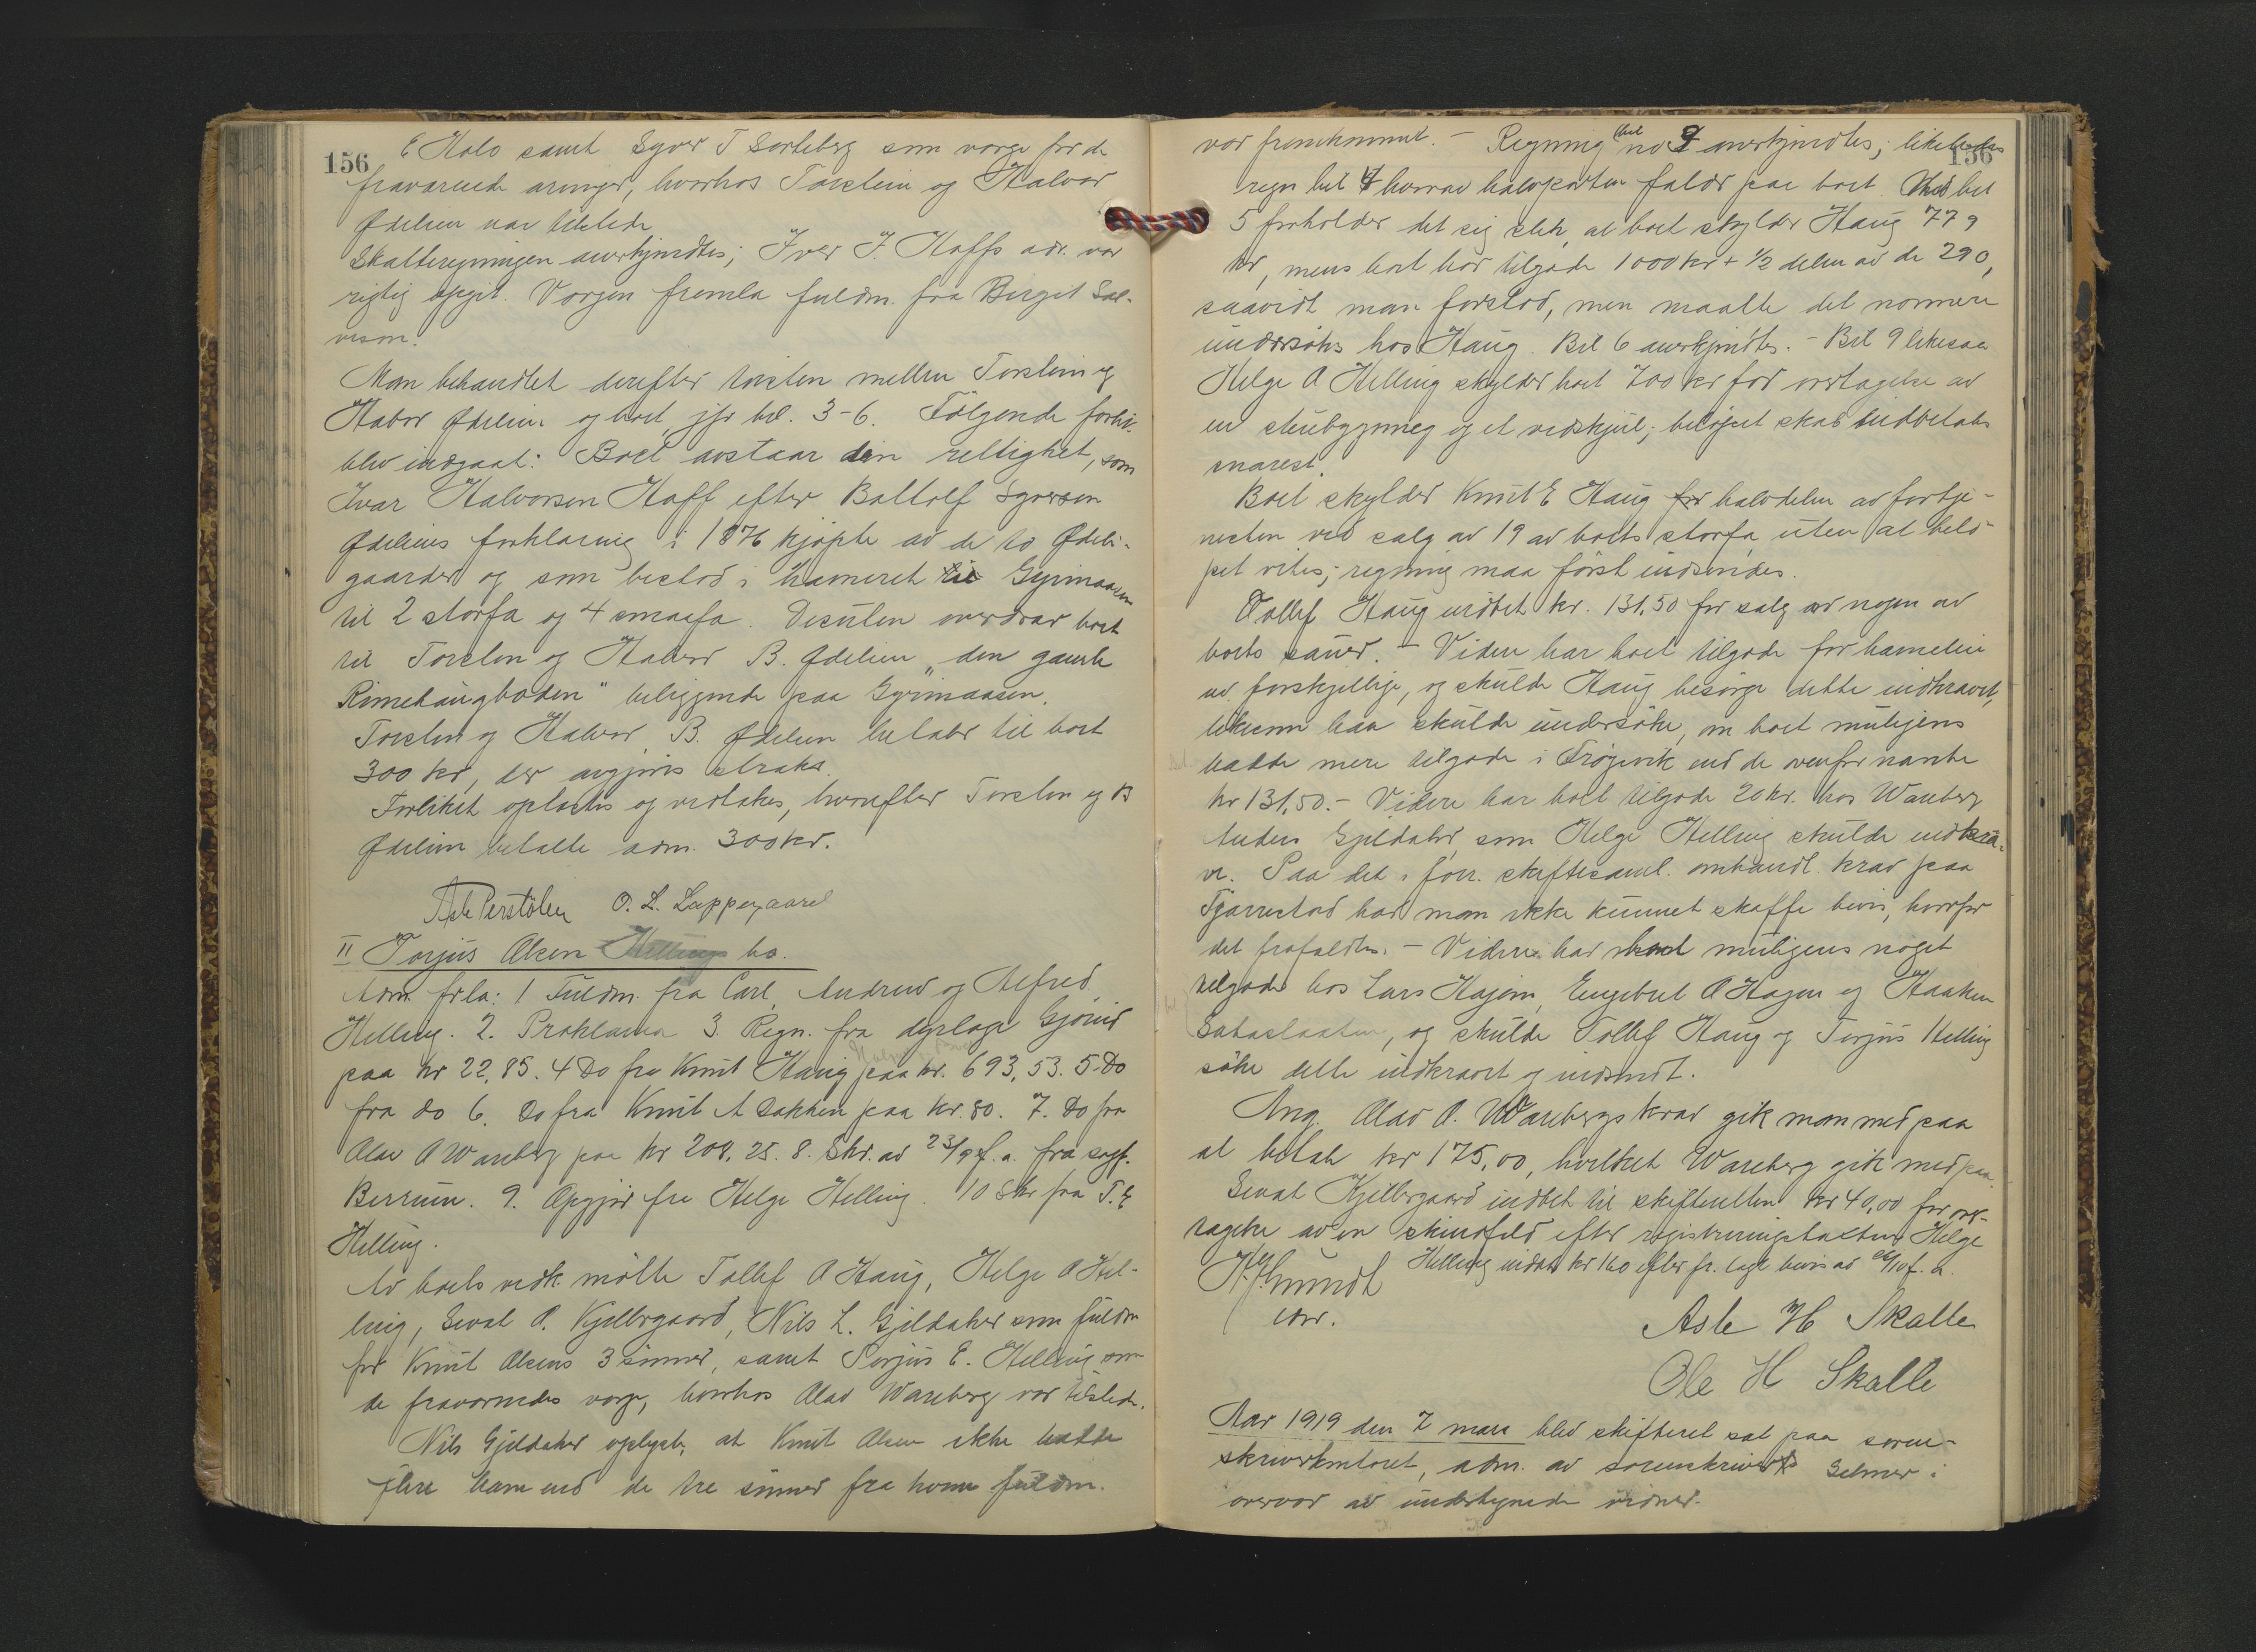 156
E Halo samt Syver T Sorteberg som verge for de
fraværende arvinger, hvorhos Torstein og Halvor
Ødelien var tilstede
Skatteregningen anerkjendtes; Iver I. Hoffs adr. var
rigtig opgit. Vergen fremla fuldm. fra Birgit Sal-
veson.
Man behandlet derefter tvisten mellem Torstein og
Halvor Ødelien og boet jfr bil. 3-6. Følgende forlik
blev indgaat: Boet avstaar den rettighet, som
Ivar Halvorsen Hoff efter Bottolf Syversen
Ødeliens forklaring i 1876 kjøpte av de to Ødeli-
gaarder og som bestod i havneret til Gyrimaasen
til 2 storfæ og 4 smaafæ. Desuten overdrar boet
til Torsten og Halvor B. Ødelien "den gamle
Rimehaugboden" beliggende paa Gyrimaasen.
Torsten og Halvor B. Ødelien betaler til boet
300 kr, der avgjøres straks.
Forliket oplæstes og vedtakes, hvorefter Torsten og B
Ødelien betalte adm. 300 kr.
Asle Perstølen O. L. Luppegaard
II Torjus Olsen Hellings bo.
Adm. frla: 1 Fuldm. fra Carl, Andrew og Alfred
Helling. 2. Proklama 3 Regn. fra dyrlæge Gjørud
paa kr 22,85. 4 Do fra Knut Haug paa kr. 693,53. 5. Do
fra do 6. Do fra Knut A Bakken paa kr. 80. 7. Do fra
Olav O Wareberg paa kr 208,25. 8. Skr. av 23/9 f. a. fra sagf.
Berrum. 9. Opgjør fra Helge Helling. 10 Skr fra T. E
Helling.
Av boets vedk. møtte Tollef O Haug, Helge O Hel-
ling, Sevat O. Kjellergaard, Nils L. Gjeldaker som fuldm
for Knut Olsens 3 sønner, samt Torjus E. Helling som
de fraværendes verge, hvorhos Olav Wareberg var tilstede.
Nils Gjeldaker oplyste, at Knut Olsen ikke hadde
flere barn end de tre sønner fra hvem fuldm.
156
var fremkommet. - Regning bil no 3 anerkjendtes, likeledes
regn bil 4 hvorav halvparten falder paa boet. Med bil
5 forholder det sig slik, at boet skylder Haug 779
kr, mens boet har tilgode 1000 kr + 1/2 delen av de 290,
saavidt man forstod, men maatte det nærmere
undersøkes hos Haug. Bil 6 anerkjendtes. - Bil 9 likesaa
Helge O Helling skylder boet 700 kr for overtagelse av
en stubygning og et vedskjul; beløpet skal indbetales
snarest.
Boet skylder Knut E Haug for halvdelen av fortje-
nesten ved salg av 19 av boets storfæ, uten at belø-
pet vites; regning maa først indsendes.
Tollef Haug indbet kr. 131,50 for salg av nogen av
boets sauer. - Videre har boet tilgode for havneleie
av forskjellige, og skulde Haug besørge dette indkrævet,
likesom han skulde undersøke, om boet muligens
hadde mere tilgode i Frøgevik end de ovenfor nævnte
kr 131,50. - Videre har boet tilgode 20 kr. hos Wareberg
Anders Gjeldaker, som Helge Helling skulde indkræ-
ve. Paa det i forr. skiftesaml. omhandl. krav paa
Tjørrestad har man ikke kunnet skaffe bevis, hvorfor
det frafaldtes. - Videre har boet muligens noget
tilgode hos Lars Hajem, Engebret O Hagen og Haaken
Sataslaatten, og skulde Tollef Haug og Torjus Helling
søke dette indkrævet og indsendt.
Ang. Olav O. Warebergs krav gik man med paa
at betale kr 175,00, hvilket Wareberg gik med paa.
Sevat Kjellergaard indbet til skifteretten kr 40,00 for over-
tagelse av en skindfeld efter registreringstaksten. Helge
Helling indbet. kr 160 efter fr. lagt bevis av /10 f. a.
Asle H Skalle
Ole H Skalle
Aar 1919 den 7 mars blev skifteret sat paa soren-
skriverkontoret, adm. av sorenskriver Selmer i
overvær av undertegnede vidner.